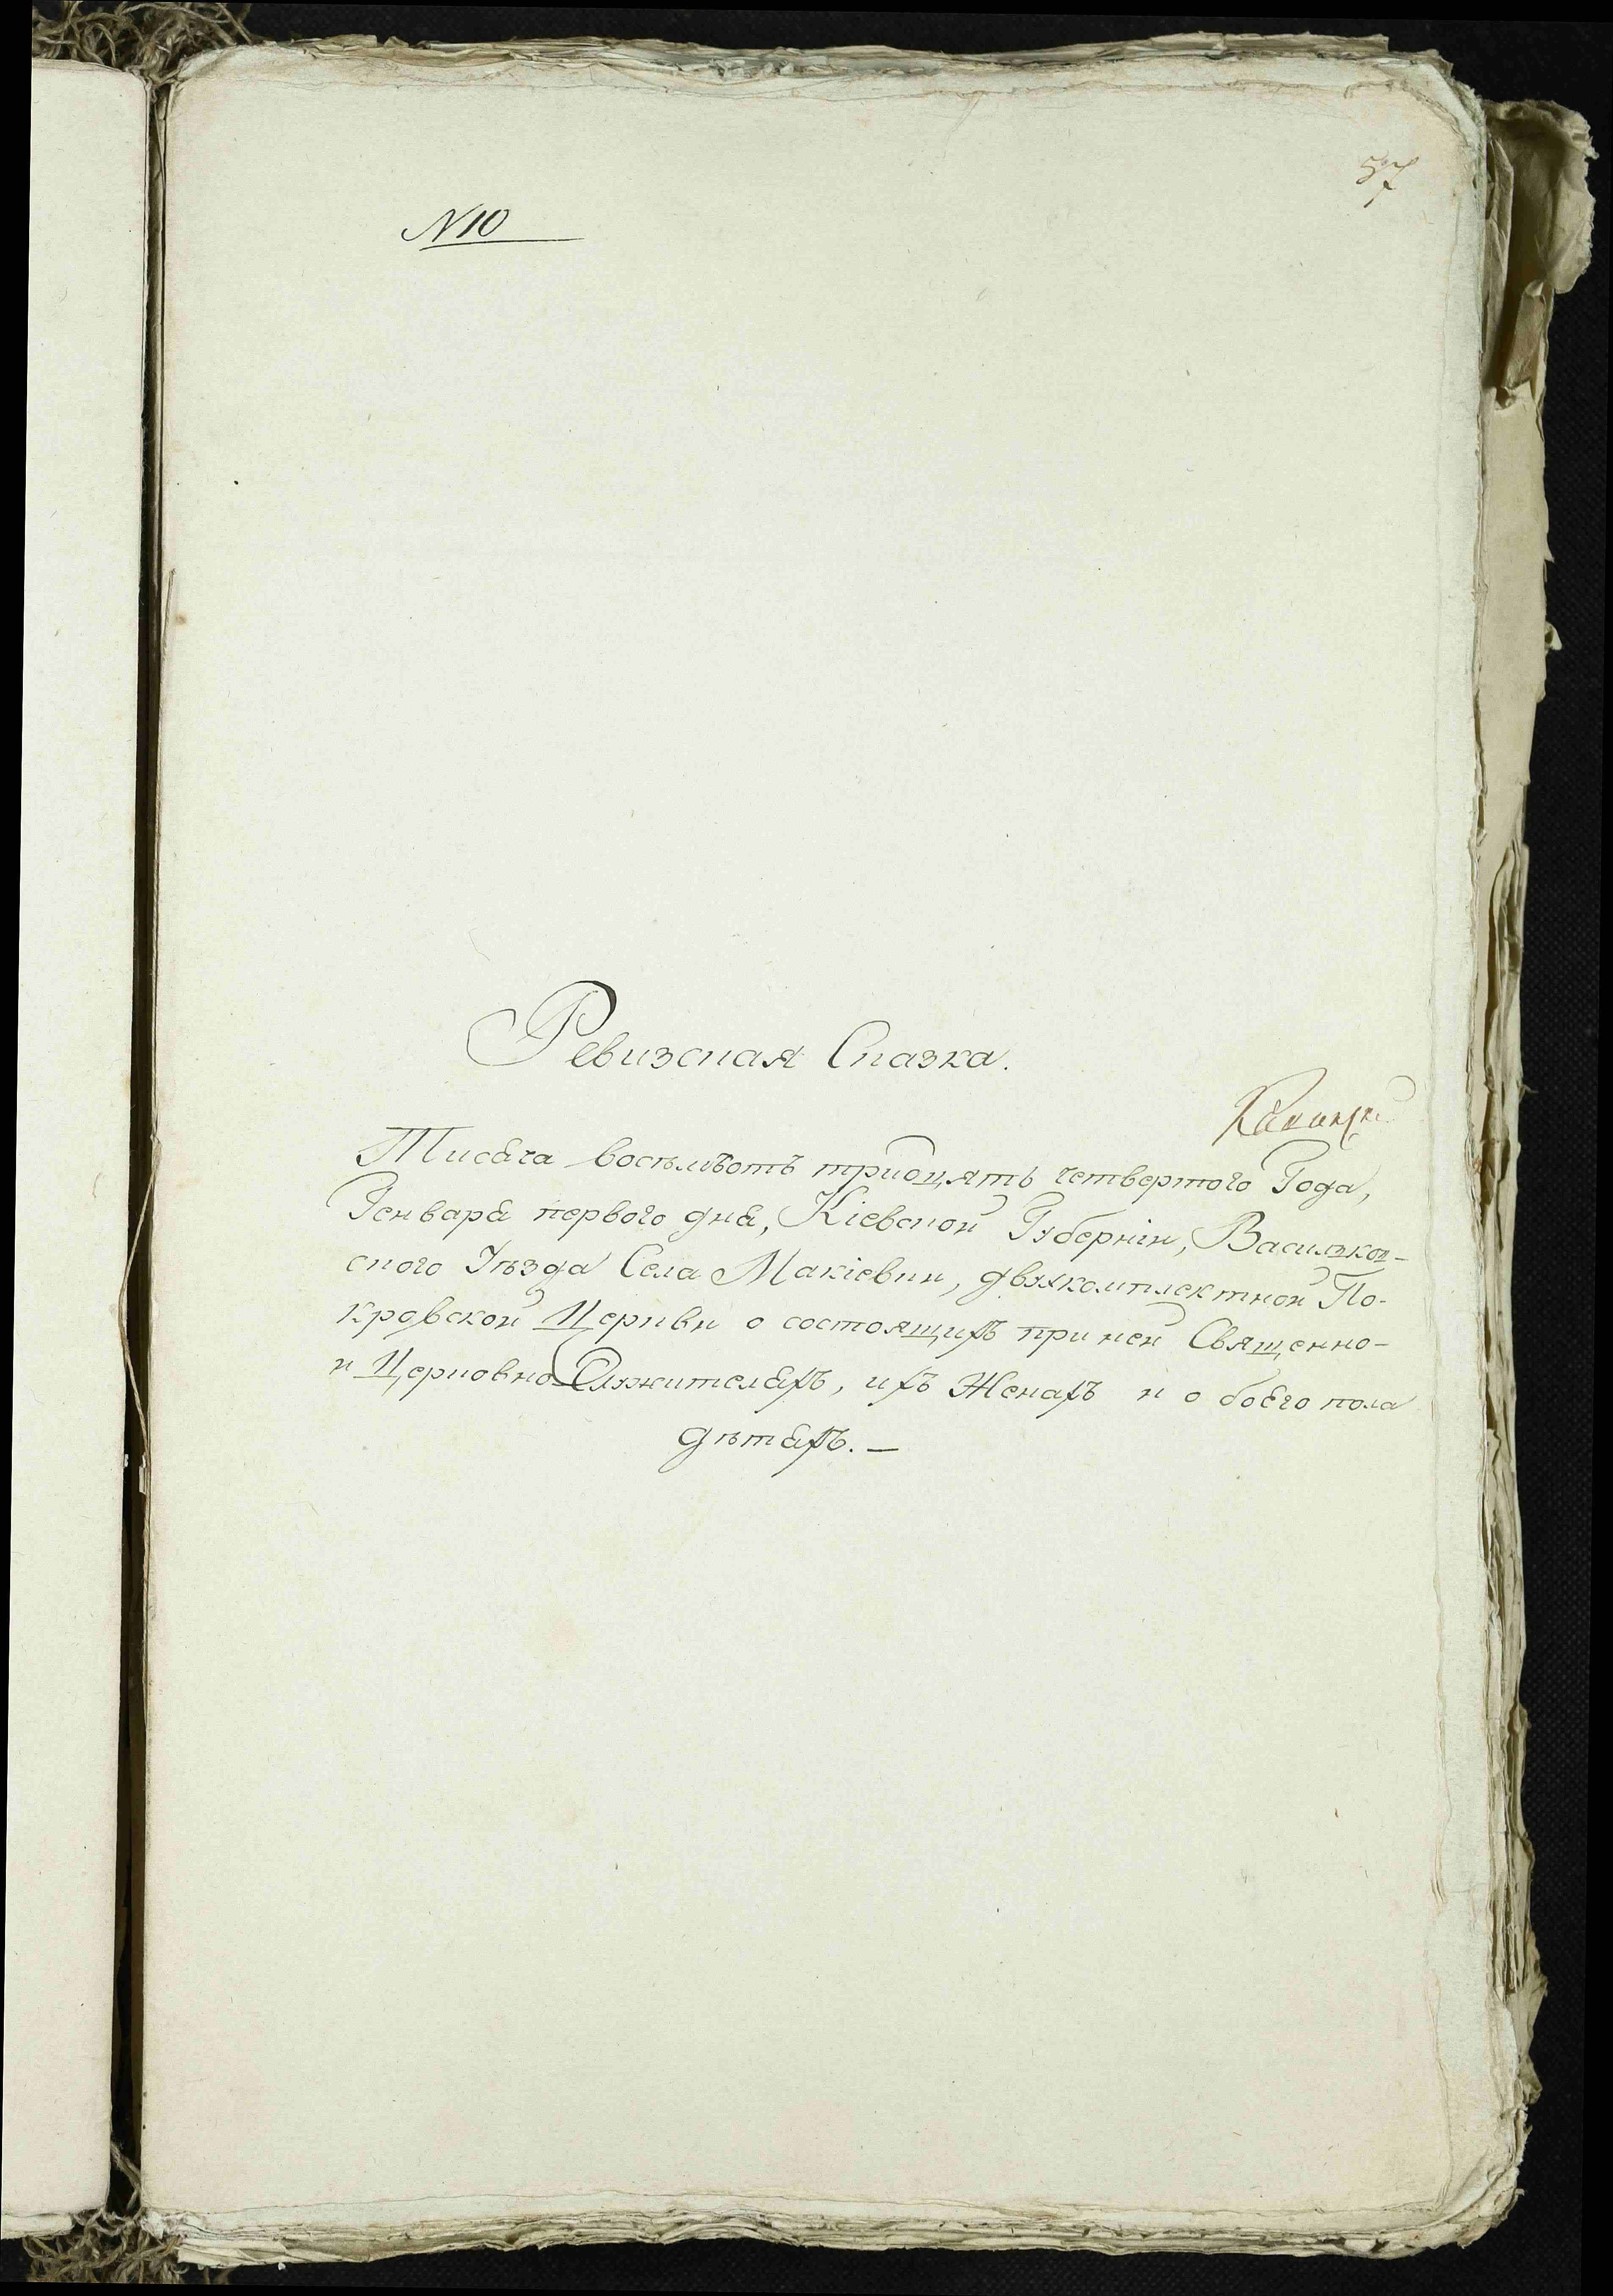 57
N 10
Ревизская Сказка.
Тисяча восѣмьсотъ тридцять четвертого Года,
Генваря первого дня, Кіевской Губерніи, Василков-
ского Уѣзда Села Макіевки, двухкомплектной По-
кровской Церкви о состоящихъ при ней Священно-
и Церковно-Служителяхъ, ихъ Женахъ и обоего пола
дѣтяхъ. —